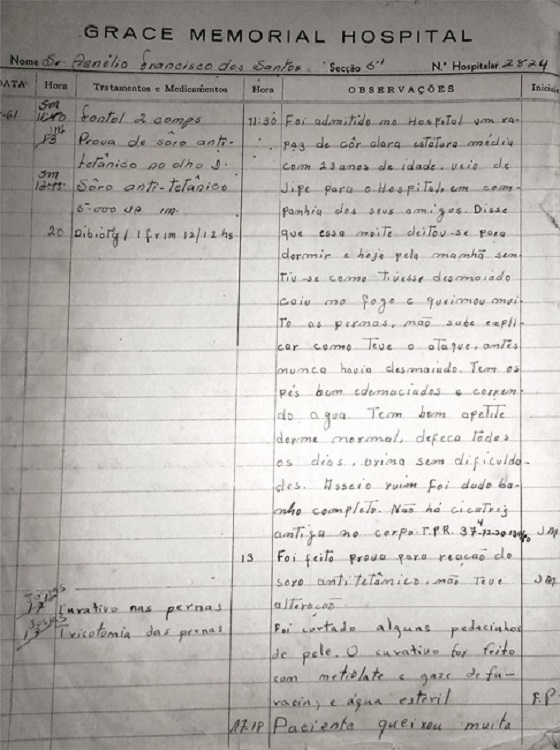 GRACE MEMORIAL HOSPITAL
Nome Sr. Agnélio Francisco dos Santos Secção 6-1 N.º Hospitalar 2824
DATA Hora Tratamentos e Medicamentos Hora OBSERVAÇÕES Iniciais
-61 11:40 Fontol 2 comps 11:30 Foi admitido no Hospital um ra-
13 Prova de sôro anti- paz de côr clara estatura média
tetânico no olho D. com 23 anos de idade, veio de
12:45 Sôro anti-tetânico Jipe para o Hospital, em com-
5.000 im. panhia dos seus amigos. Disse
20 1 fr im 12/12 hs que essa noite deitou-se para
dormir e hoje pela manhã sen-
tiu-se como tivesse desmaiado
caiu no fogo e queimou mui-
to as pernas, não sabe expli-
car como teve o ataque, antes
nunca havia desmaiado. Tem os
pés bem edemaciados e corren-
do agua. Tem bom apetite
dorme normal, defeca todos
os dias, urina sem dificulda-
des. Asseio ruim foi dado ba-
nho completo. Não há cicatriz
antiga no corpo. T.P.R. 37⁴ J.M.
13 Foi feito prova para reação do
soro antitetânico, não teve J.M.
17 Curativo nas pernas alteração.
Tricotomia das pernas Foi cortado alguns pedacinhos
de pele. O curativo foi feito
com metiolate e gaze de fu-
racin, e água esteril F.P.
17-19 Paciente queixou muito